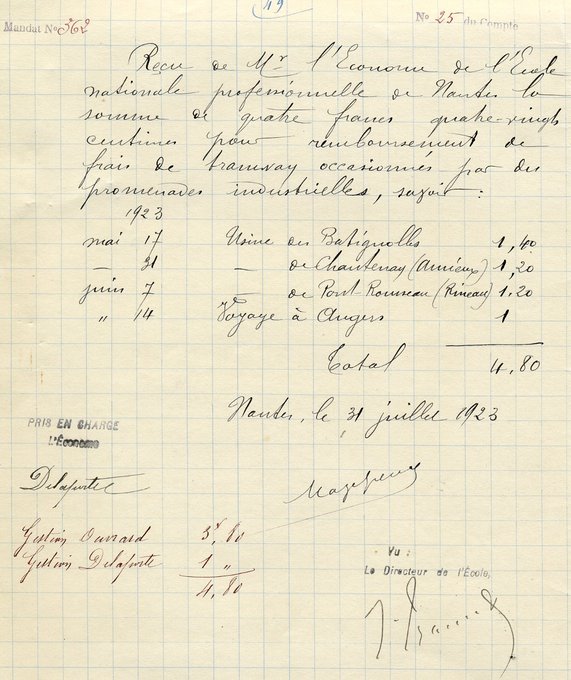 49
Mandat No 362
No 25 du Compte
Reçu de Mr l'Econome de l'Ecole
nationale professionnelle de Nantes la
somme de quatre francs quatre-vingts
centimes pour remboursement de
frais de tramway occasionnés par des
promenades industrielles, savoir :
1923
mai 17 Usine des Batignolles 1,40
— 31 — de Chantenay (Amieux) 1,20
juin 7 — de Pont Rousseau (Rineau) 1.20
" 14 Voyage à Angers 1
Total 4,80
Nantes, le 31 juillet 1923
PRIS EN CHARGE
L'Économe
Delaporte
Gestion Ouvrard 3f,80
Gestion Delaporte 1 "
4,80
Vu :
Le Directeur de l'École,